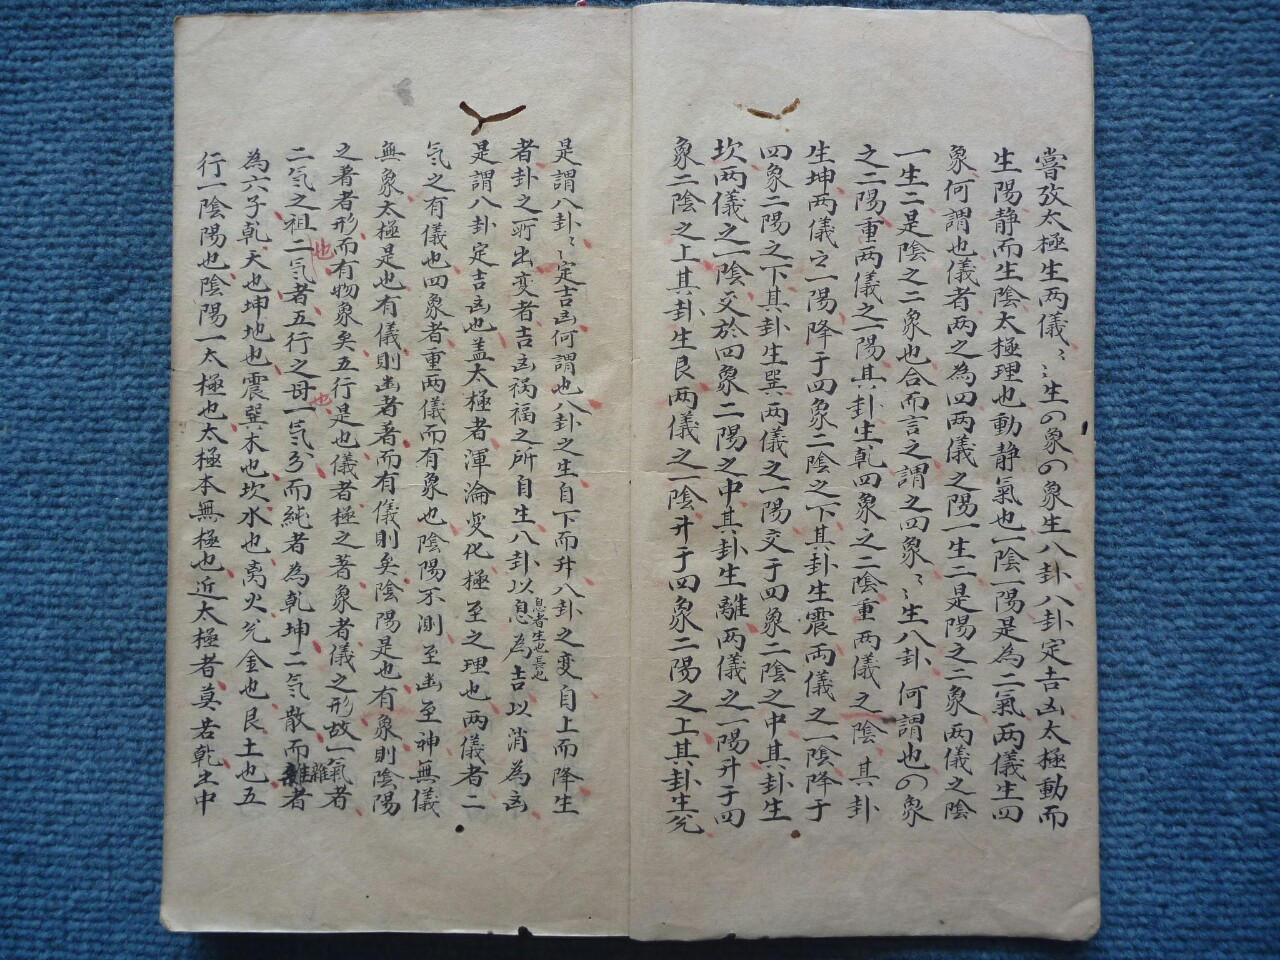 嘗攷太極生两儀〻生四象四象生八卦八卦定吉凶太極動而
生陽静而生陰太極理也動静氣也一陰一陽是為二氣两儀生四
象何謂也儀者两之為四两儀之陽一生二是陽之二象两儀之陰
一生二是陰之二象也合而言之謂之四象〻生八卦何謂也四象
之二陽重两儀之一陽其卦生乾四象之二陰重两儀之陰其卦
生坤两儀之一陽降于四象二陰之下其卦生震两儀之一陰降于
四象二陽之下其卦生巽两儀之一陽交于四象二陰之中其卦生
坎两儀之一陰交於四象二陽之中其卦生離两儀之一陽升于四
象二陰之上其卦生艮两儀之一陰升于四象二陽之上其卦生兊
是謂八卦〻定吉凶何謂也八卦之生自下而升八卦之变自上而降生
者卦之所出变者吉凶祸福之所自生八卦以息息者生也長也為吉以消為凶
是謂八卦定吉凶也盖太極者渾淪变化極至之理也两儀者二
気之有儀也四象者重两儀而有象也陰陽不測至幽至神無儀
無象太極是也有儀則幽者著而有儀則矣陰陽是也有象則陰陽
之著者形而有物象矣五行是也儀者極之著象者儀之形故一氣者
二気之祖也二気者五行之母也一気分而純者為乾坤二気散而雜者
為六子乾天也坤地也震巽木也坎水也离火兊金也艮土也五
行一陰陽也陰陽一太極也太極本無極也近太極者莫若乾坤中